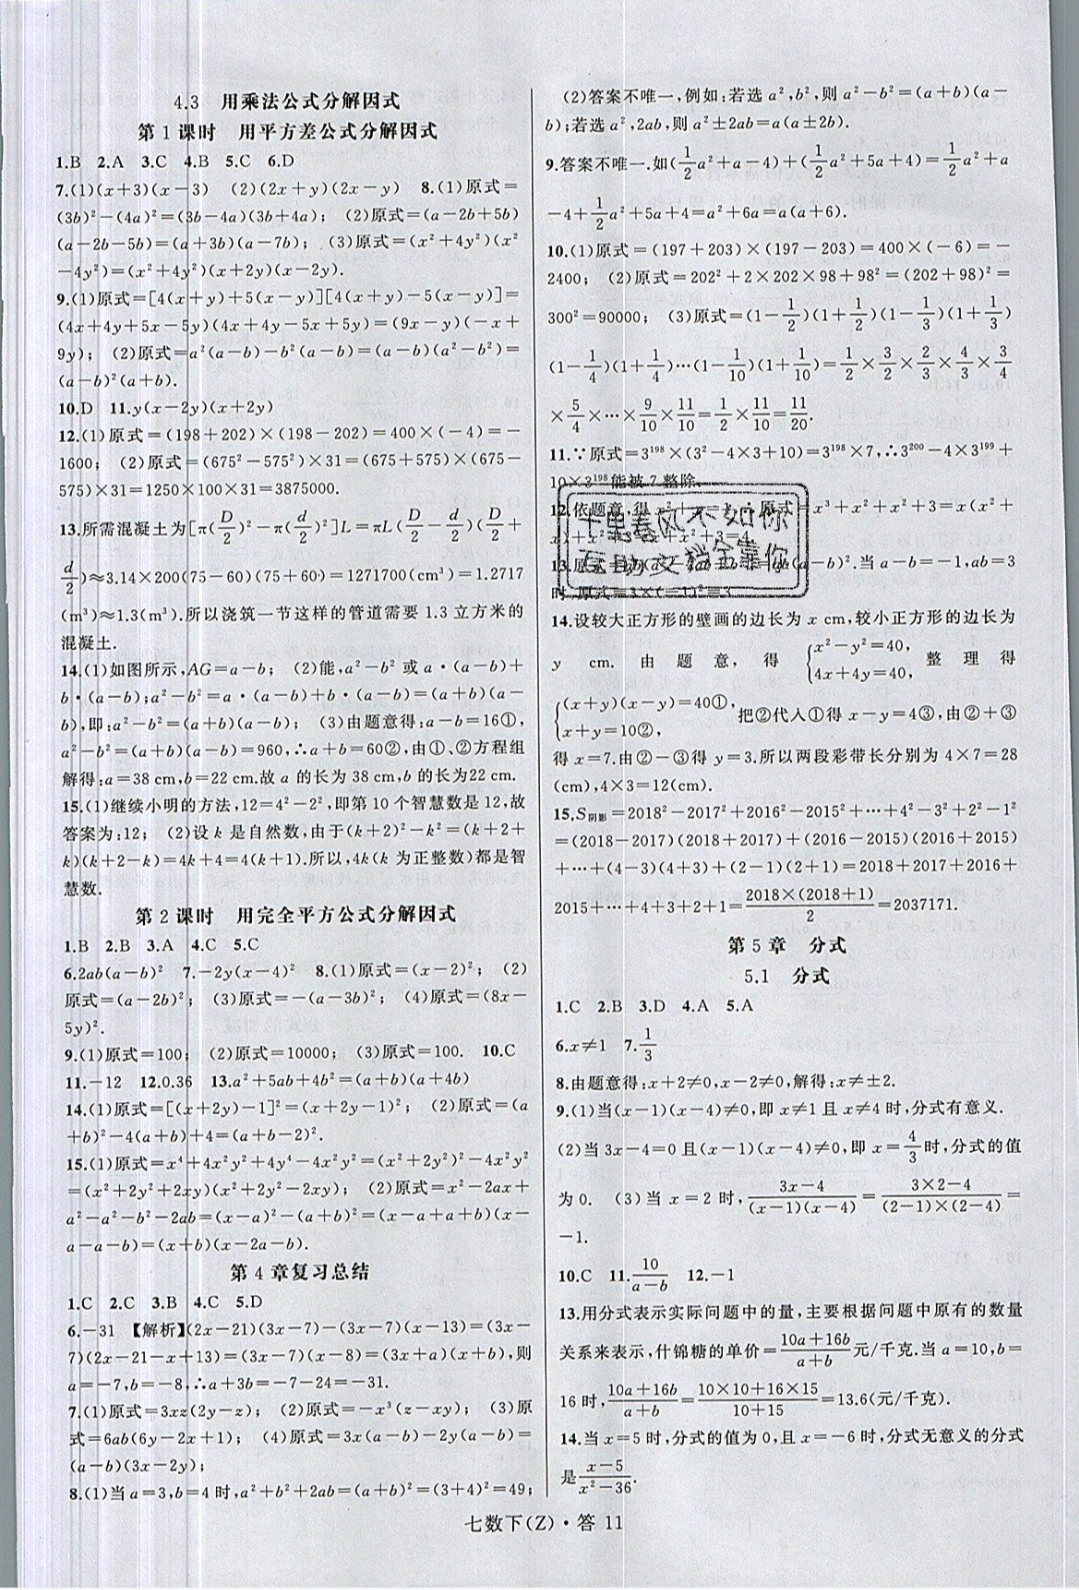 4.3 用乘法公式分解因式
第1课时 用平方差公式分解因式
1.B 2.A 3.C 4.B 5.C 6.D
7.(1)(x+3)(x-3) (2)(2x+y)(2x-y) 8.(1)原式=
(3b)²-(4a)²=(3b-4a)(3b+4a); (2)原式=(a-2b+5b)
(a-2b-5b)=(a+3b)(a-7b); (3)原式=(x²+4y²)(x²
-4y²)=(x²+4y²)(x+2y)(x-2y).
9.(1)原式=[4(x+y)+5(x-y)][4(x+y)-5(x-y)]=
(4x+4y+5x-5y)(4x+4y-5x+5y)=(9x-y)(-x+
9y); (2)原式=a²(a-b)-b²(a-b)=(a-b)(a²-b²)=
(a-b)²(a+b).
10.D 11.y(x-2y)(x+2y)
12.(1)原式=(198+202)×(198-202)=400×(-4)=-
1600; (2)原式=(675²-575²)×31=(675+575)×(675-
575)×31=1250×100×31=3875000.
13.所需混凝土为[π(D/2)²-π(d/2)²]L=πL(D/2-d/2)(D/2+
d/2)≈3.14×200(75-60)(75+60)=1271700(cm³)=1.2717
(m³)≈1.3(m³).所以浇筑一节这样的管道需要1.3立方米的
混凝土.
14.(1)如图所示,AG=a-b; (2)能,a²-b²或a·(a-b)+
b·(a-b);a²-b²=a·(a-b)+b·(a-b)=(a+b)(a-
b),即:a²-b²=(a+b)(a-b); (3)由题意得:a-b=16①,
a²-b²=(a+b)(a-b)=960,∴a+b=60②,由①、②方程组
解得:a=38 cm,b=22 cm.故a的长为38 cm,b的长为22 cm.
15.(1)继续小明的方法,12=4²-2²,即第10个智慧数是12,故
答案为:12; (2)设k是自然数,由于(k+2)²-k²=(k+2+
k)(k+2-k)=4k+4=4(k+1).所以,4k(k为正整数)都是智
慧数.
第2课时 用完全平方公式分解因式
1.B 2.B 3.A 4.C 5.C
6.2ab(a-b)² 7.-2y(x-4)² 8.(1)原式=(x-2)²; (2)
原式=(a-2b)²; (3)原式=-(a-3b)²; (4)原式=(8x-
5y)².
9.(1)原式=100; (2)原式=10000; (3)原式=100. 10.C
11.-12 12.0.36 13.a²+5ab+4b²=(a+b)(a+4b)
14.(1)原式=[(x+2y)-1]²=(x+2y-1)²; (2)原式=(a
+b)²-4(a+b)+4=(a+b-2)².
15.(1)原式=x⁴+4x²y²+4y⁴-4x²y²=(x²+2y²)²-4x²y²
=(x²+2y²+2xy)(x²+2y²-2xy); (2)原式=x²-2ax+
a²-a²-b²-2ab=(x-a)²-(a+b)²=(x-a+a+b)(x-
a-a-b)=(x+b)(x-2a-b).
第4章复习总结
1.C 2.C 3.B 4.C 5.D
6.-31 【解析】(2x-21)(3x-7)-(3x-7)(x-13)=(3x-
7)(2x-21-x+13)=(3x-7)(x-8)=(3x+a)(x+b),则
a=-7,b=-8,∴a+3b=-7-24=-31.
7.(1)原式=3xz(2y-z); (2)原式=-x³(z-xy); (3)原
式=6ab(6y-2x+1); (4)原式=3x(a-b)-2y(a-b)=
(a-b)(3x-2y);
8.(1)当a=3,b=4时,a²+b²+2ab=(a+b)²=(3+4)²=49;
(2)答案不唯一,例如:若选a²,b²,则a²-b²=(a+b)(a-
b);若选a²,2ab,则a²±2ab=a(a±2b).
9.答案不唯一.如(1/2a²+a-4)+(1/2a²+5a+4)=1/2a²+a
-4+1/2a²+5a+4=a²+6a=a(a+6).
10.(1)原式=(197+203)×(197-203)=400×(-6)=-
2400; (2)原式=202²+2×202×98+98²=(202+98)²=
300²=90000; (3)原式=(1-1/2)(1+1/2)(1-1/3)(1+1/3)
(1-1/4)(1+1/4)…(1-1/10)(1+1/10)=1/2×3/2×2/3×4/3×3/4
×5/4×…×9/10×11/10=1/2×11/10=11/20.
11.∵原式=3¹⁹⁸×(3²-4×3+10)=3¹⁹⁸×7,∴3²⁰⁰-4×3¹⁹⁹+
10×3¹⁹⁸能被7整除.
12.依题意,得x²+x=1,∴原式=x³+x²+x²+3=x(x²+
x)+x²+3=x+x²+3=4.
13.原式=(a-b)².当a-b=-1,ab=3
时,原式=3×(-1)²=3.
十里春风不如你
互助文档全靠你
14.设较大正方形的壁画的边长为x cm,较小正方形的边长为
y cm.由题意,得{x²-y²=40, 4x+4y=40, 整理得
{(x+y)(x-y)=40①, x+y=10②, 把②代人①得x-y=4③,由②+③
得x=7.由②-③得y=3.所以两段彩带长分别为4×7=28
(cm),4×3=12(cm).
15.S阴影=2018²-2017²+2016²-2015²+…+4²-3²+2²-1²
=(2018-2017)(2018+2017)+(2016-2015)(2016+2015)
+…+(4-3)(4+3)+(2-1)(2+1)=2018+2017+2016+
2015+…+4+3+2+1=2018×(2018+1)/2=2037171.
第5章 分式
5.1 分式
1.C 2.B 3.D 4.A 5.A
6.x≠1 7.1/3
8.由题意得:x+2≠0,x-2≠0,解得:x≠±2.
9.(1)当(x-1)(x-4)≠0,即x≠1且x≠4时,分式有意义.
(2)当3x-4=0且(x-1)(x-4)≠0,即x=4/3时,分式的值
为0. (3)当x=2时,(3x-4)/((x-1)(x-4))=(3×2-4)/((2-1)×(2-4))=
-1.
10.C 11.10/(a-b) 12.-1
13.用分式表示实际问题中的量,主要根据问题中原有的数量
关系来表示,什锦糖的单价=(10a+16b)/(a+b)元/千克.当a=10,b=
16时,(10a+16b)/(a+b)=(10×10+16×15)/(10+15)=13.6(元/千克).
14.当x=5时,分式的值为0,且x=-6时,分式无意义的分式
是(x-5)/(x²-36).
七数下(Z)·答 11